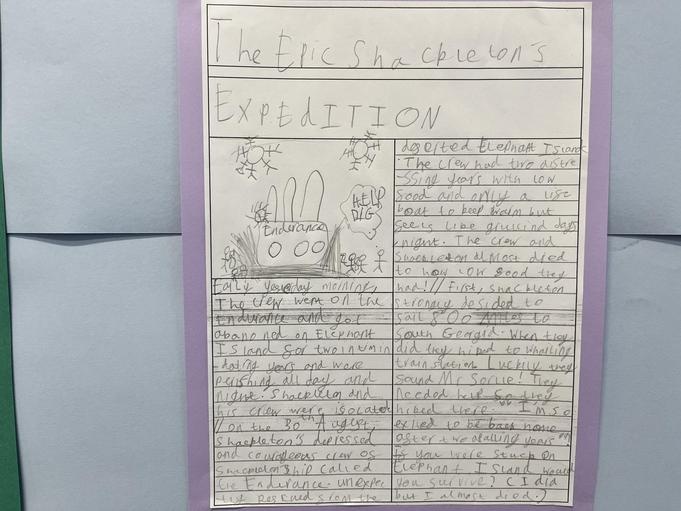 The Epic Shackleton's
EXPEDITION
HELP
Endurance
Early yesterday morning,
The crew went on the
Endurance and got
abanoned on Elephant
Island for two intimin
-dating years and were
perishing all day and
night. Shackleton and
his crew were isolated
// on the 30th August,
shackleton's depressed
and courageous crew of
Shackleton ship called
the Endurance. unexpec
tly rescued from the
deserted Elephant Island
. The crew had two distre
-ssing years with low
food and only a life
boat to keep warm but
feels like days
night. The crew and
Shackleton almost died
to how low food they
had! // First, shackleton
strongly desided to
sail 800 Miles to
South Georgia. When they
did they hiked to whailing
train station Luckily they
found Mr Sorlle! They
needed help so they
hiked there. "I'm so
exited to be back home
after two years"
If you were stuck on
Elephant Island would
you survive? (I did
but I almost died.)